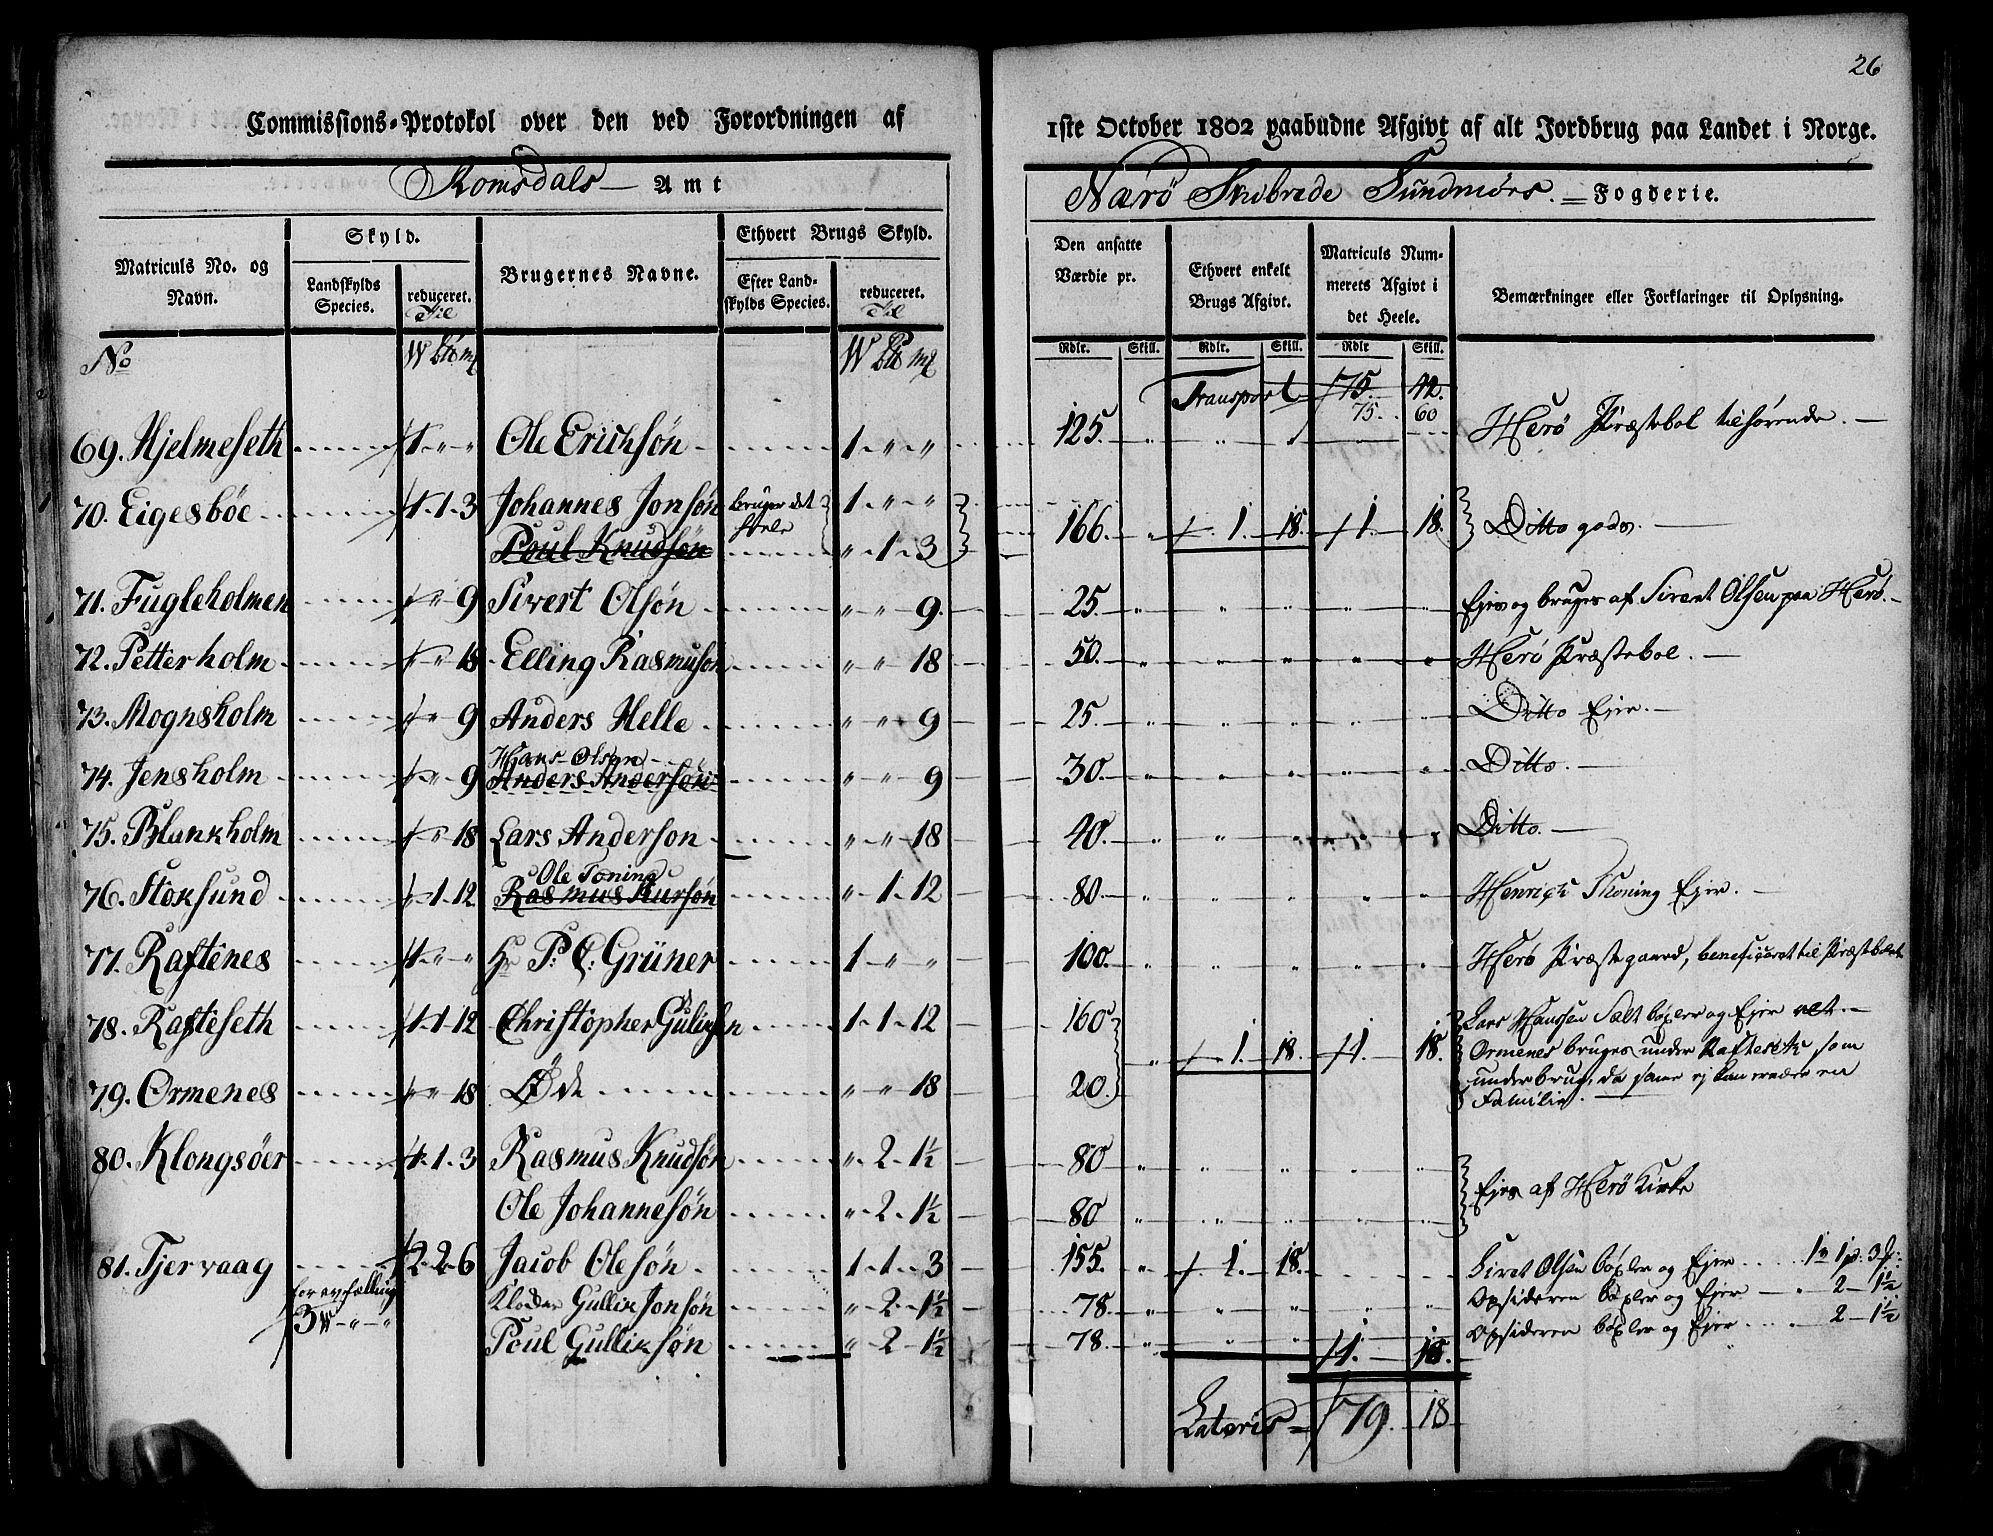 26
Commissions-Protokol over den ved Forordningen af 1ste October 1802 paabudne Afgivt af alt Jordbrug paa Landet i Norge.
Romsdals Amt
Nærø Skibrede Sundmørs. Fogderie.
Matriculs No. og Navn.
Skyld.
Landskylds Species.
reduceret.
Brugernes Navne.
Ethvert Brugs Skyld.
Efter Landskylds Species.
reduceret.
Den ansatte Værdie pr.
Ethvert enkelt Brugs Afgivt.
Matriculs Nummerets Afgivt i det Heele.
Bemærkninger eller Forklaringer til Oplysning.
Rdlr. Skill. Rdlr. Skill. Rdlr Skill.
No
Transport 75. 42.
75. 60
69. Hjelmeseth 1 " " Ole Erichsøn 1 " " 125. " " " Herø Præstebol tilhørende.
70. Eigesbøe 1-1-3 Johannes Jonsøn bruger det Hele 1 " " 166. " 1. 18. 1. 18. Ditto gods.
Poul Knudsøn " 1-3
71. Fugleholmen " " 9 Sivert Olsøn " " 9. 25. " " " " " Ejes og bruges af Sivert Olsen paa Herø.
72. Petterholm " " 18 Elling Rasmusøn " " 18 50. " " " " " Herø Præstebol.
73. Mognsholm " " 9 Anders Helle " " 9 25. " " " " " Ditto Ejer.
Hans Olsen
74. Jensholm " " 9 Anders Andersøn " " 9 30. " " " " " Ditto.
75. Blankholm " " 18 Lars Anderson " " 18 40. " " " " " Ditto.
Ole Toning
76. Stoksund " 1-12 Rasmus " 1-12 80. " " " " " Henrich Thoning Ejer.
77. Raftenes 1 " " Hr P: C: Grüner 1 " " 100. " " " " " Herø Præstegaard, beneficeret til Præstebolet
78. Rafteseth 1-1-12 Christopher 1-1-12 160 " 1. 18. 1. 18. Lars Hanssen Salt bøxler og Ejer
79. Ormenes " " 18 Øde " " 18 20. Ormenes bruges under Rafteseth som
underbrug, da samme ej kan ernære en
Familie.
80. Klongsöer 1-1-3 Rasmus Knudsøn " 2-1½ 80 " " " " " Ejes af Herø Kirke
Ole Johannesøn " 2-1½ 80 " " " " "
81. Tjervaag 2-2-6 Jacob Olesøn 1-1-3 155. " 1. 18. Sivert Olsen bøxler og Ejer 1 W 1 p: 3
3 W " " Gullik Jonsøn " 2-1½ 78. " " " Opsideren bøxler og Ejer " 2-1½
Poul Gulliksøn " 2-1½ 78. " " " 1. 18. Opsideren bøxler og Ejer " 2-1½
Lateris 79. 18